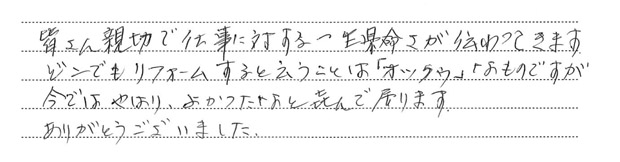 皆さん親切で仕事に対する一生県命さが伝わってきます
どこでもリフォームすると云うことは「オックウ」なものですが
今ではやはり、よかったなと喜んで居ります
ありがとうございました.